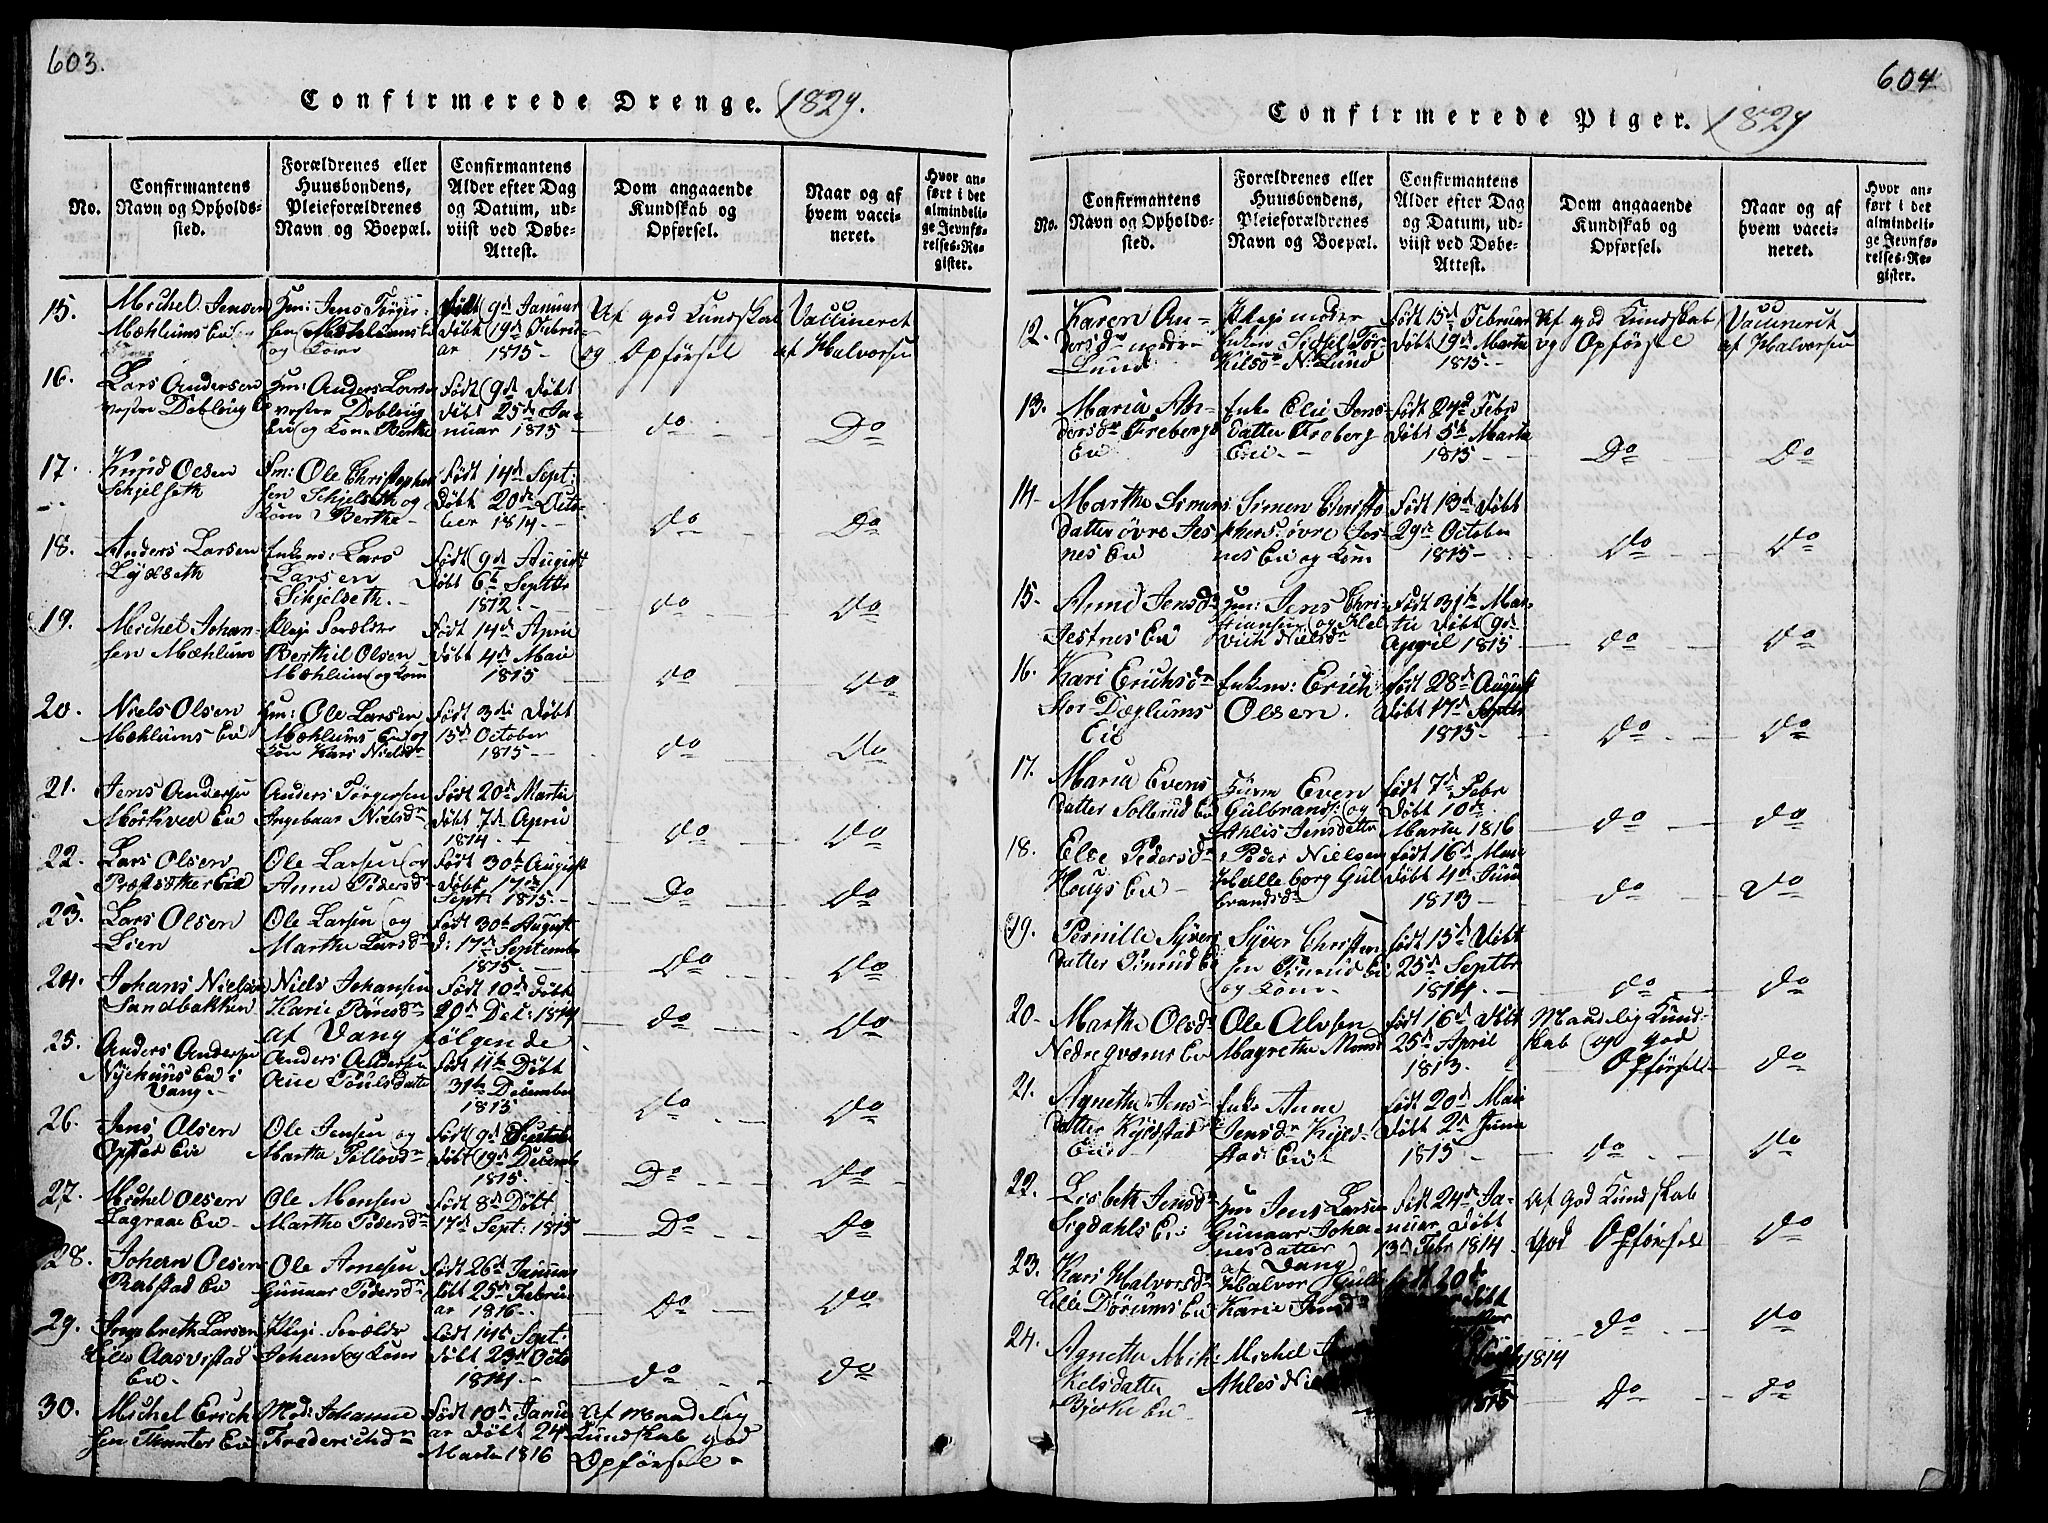 603.
Confirmerede Drenge. 1829.
No.
Confirmantens
Navn og Opholds-
sted.
Forældrenes eller
Huusbondens,
Pleieforældrenes
Navn og Boepæl.
Confirmantens
Alder efter Dag
og Datum, ud-
viist ved Døbe-
Attest.
Dom angaaende
Kundskab og
Opførsel.
Naar og af
hvem vacci-
neret.
Hvor an-
ført i det
almindeli-
ge Jevnfø-
relses-Re-
gister.
15.
Michel Jensen
Mæhlums Eie
Hm: Jens Törger-
sen
og Kone
Födt 9d Januar
Döbt 19d Febru-
ar 1815
Af god Kundskab
og Opførsel
Vaccineret
af Halvorsen
16.
Lars Andersen
vestre Dobloug E
Hm: Anders Larsen
vestre Dobloug
Eie og Kone Berthe
Födt 9de Döbt
25de Ja-
nuar 1815
do
Do
17.
Knud Olsen
Schjelseth
Hm: Ole Christopher-
sen Schjelseth og
Kone Berthe
Födt 14de Sept:
Döbt 20de Octo-
ber 1814
do
Do
18.
Anders Larsen
Enkem: Lars
Larsen
Schjelseth.
Födt 9d August
Döbt 6te Septbr
1812.
do
do
19.
Michel Johan-
sen Mæhlum
Pleie Forældre
Berthil Olsen
Mæhlum og Kone
Födt 14d April
Döbt 4d Maii
1815
do
do
20.
Niels Olsen
Mæhlums Eie
Hm: Ole Larsen
Mæhlums Eie og
Kon Kari Nielsdr
Födt 3di Döbt
15d October
1815
do
do
21.
Jens Andersen
Mörkved Eie
Anders Törgersen
Ingebaar Nielsdr
Födt 20d Martii
Döbt 7d April
1814
do
do
22.
Lars Olsen
Præstsæther Eie
Ole Larsen og
Anne Pedersdr
Födt 30te August
Döbt 17de
Sept: 1815.
Do
do
23.
Lars Olsen
Lien
Ole Larsen og
Marthe Larsdr
Födt 30te August
D: 17d September
1815
Do
do
24.
Johans Nielsen
Sandbakken
Niels Johansen
Karie
Födt 10d Döbt
29de Dec: 1814
do
do
af Vang følgende
25.
Anders Andersen
Nyehuus Eie i
Vang.
Anders Andersen
Ane Poulsdatter
Födt 11te Döbt
31te December
1815
do
do
26.
Jens Olsen
Opstad Eie
Ole Jensen og
Marthe Tollevdr
Födt 9d
Döbt 19d Decemb
1815.
Do
do
27.
Michel Olsen
Lagraae Eie
Ole Monsen
Marthe Pedersdr
Födt 8d Döbt
17d Sept: 1815
Do
do
28.
Johan Olsen
Rabstad Eie
Ole Arnesen
Gunnar Pedersdr
Födt 26d Januar
Döbt 25d Febru-
ar 1816
Do
do
29.
Ingebreth Larsen
Lille Aasvistad
Eie
Pleie Forældre
Johan og Kone
Födt 14d Sept:
Döbt 23d Octo
1814
do
do
30.
Michel Erich-
sen Eie
Mod: Johanne
Frederichsdr
Födt 10d Janu-
ar Döbt 24
Martii 1816
Af maadelig
Kundskab god
Opførsel
604
Confirmerede Piger. 1829
No.
Confirmantens
Navn og Opholds-
sted.
Forældrenes eller
Huusbondens,
Pleieforældrenes
Navn og Boepæl.
Confirmantens
Alder efter Dag
og Datum, ud-
viist ved Døbe-
Attest.
Dom angaaende
Kundskab og
Opførsel.
Naar og af
hvem vacci-
neret.
Hvor an-
ført i det
almindeli-
ge Jevnfø-
relses-Re-
gister.
12.
Karen An-
dersdr nedre
Lund
Pleiemoder
Enken Sidsel Tor-
kilsdr N: Lund
Födt 15d Februar
Döbt 19d Martii
1815.
Af god Kundskab
og Opførsel
Vaccineret
af Halvorsen
13.
Maria An-
dersdr Frebergs
Eie
Enke Elie Jens-
datter Freberg
Eie
Födt 24d Febr
Döbt 5te Martii
1815
Do
Do
14.
Marthe Simens
datter övre Jes-
nes Eie
Simen Christo
phers: övre Jes-
nes Eie og Kone
Födt 13d Döbt
29de October
1815
do
do
15.
Anne Jensdr
Jesnes Eie
Hm: Jens Chri-
stiansen og Hel-
vich Nielsdr
Födt 31te Mar-
tii Döbt 9d
April 1815
do
do
16.
Kari Erichsdr
Stor Dæglums
Eie
Enkem: Erich
Olsen.
Födt 28d August
Döbt 17d Septbr
1815
do
do
17.
Maria Evens
datter Sollerud Eie
Huusm Even
Gulbrands: og
Ahlis Jensdatter
Födt 7d Febr
Döbt 10de
Martii 1816
do
do
18.
Else Pedersdr
Hougs Eie
Peder Nielsen
Helleborg Gul-
brandsdr
Födt 16d Maii
Döbt 4d Juni
1813
do
do
19.
Pernille Syvers
datter Pinrud Eie
Syver Christen-
sen Pinrud Eie
og Kone
Födt 15d Döbt
25d Septbr
1814.
do
do
20.
Marthe Olsdr
Nedre Eie
Ole Alvsen
Magrethe Monsd
Födt 16d Döbt
25d April
1813.
Maadelig Kund-
skab og god
Opførsel
do
21.
Agnethe Jens-
datter Kjeldstad
Eie
Enke Anne
Jensdr Kjeld-
stad Eie
Födt 20d Maii
Döbt 2d Junii
1815
do
do
22.
Lisbeth Jensdr
Sigdahls Eie
Hm Jens Larsen
Gunaar Johan-
nesdatter
Födt 24d Ja-
nuar Döbt
13d Febr 1814
Af god Kundskab
God Opførsel
do
af Vang
23.
Kari Halvorsdr
Lille Dörums Eie
Halvor
Karie
Födt 20de
Döbt
do
do
24.
Agnethe Mik-
kelsdatter
Bjerke Eie
Michel
Ahles
1814
1815
do
do